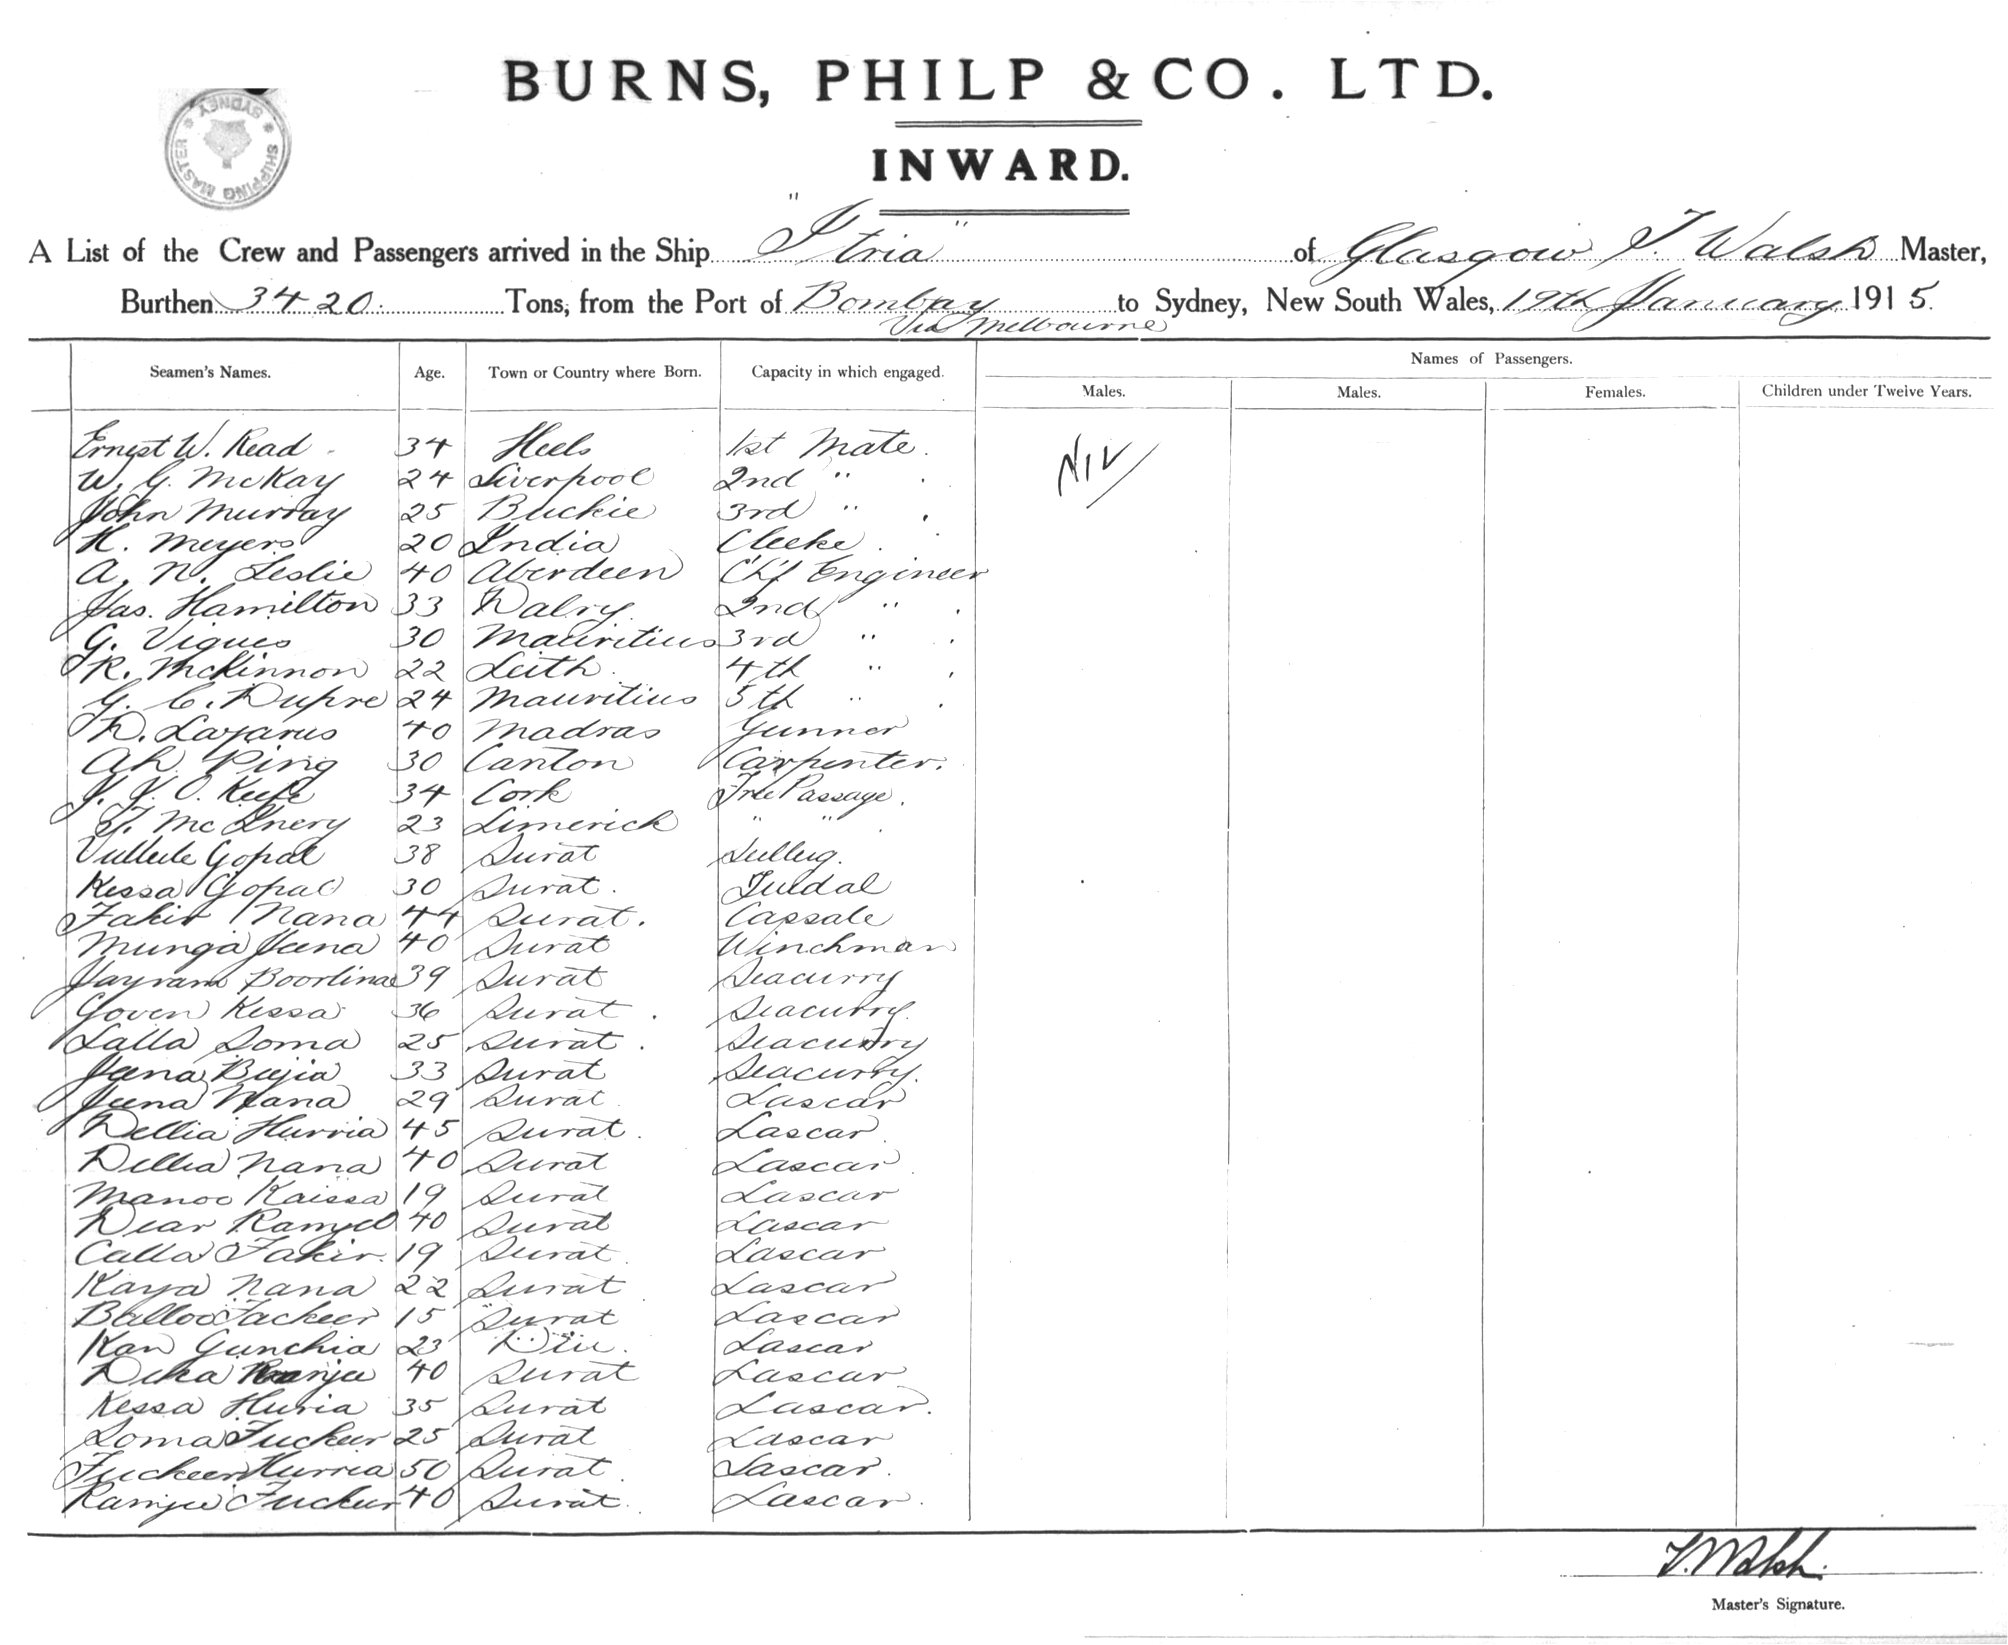 BURNS, PHILP & CO. LTD.
SHIPPING MASTER * SYDNEY *
INWARD.
A List of the Crew and Passengers arrived in the Ship "Itria" of Glasgow T. Walsh Master,
Burthen 3420 Tons, from the Port of Bombay to Sydney, New South Wales, 19th January 1915.
Via Melbourne
Names of Passengers.
Seamen's Names. Age. Town or Country where Born. Capacity in which engaged.
Males. Males. Females. Children under Twelve Years.
Ernest W. Read 34 Heels 1st Mate. NIL
W. G. McKay 24 Liverpool 2nd "
John Murray 25 Buckie 3rd "
H. Meyers 20 India Cleeke
A. N. Leslie 40 Aberdeen Chf Engineer
Jas. Hamilton 33 Dalry 2nd "
G. Vigues 30 Mauritius 3rd "
R. McKinnon 22 Leith 4th "
G. C. Dupre 24 Mauritius 5th "
D. Lazarus 40 Madras Gunner
Ah Ping 30 Canton Carpenter.
J. J. O. Keefe 34 Cork Free Passage.
T. McInery 23 Limerick " "
Gopal 38 Surat
Kessa Gopal 30 Surat.
Fakir Nana 44 Surat. Cassale
Munga Jeena 40 Surat Winchman
Jayram 39 Surat Seacurry
Goven Kessa 36 Surat. Seacurry.
Lalla Soma 25 Surat. Seacurry
Jeena 33 Surat Seacurry.
Jeena Nana 29 Surat Lascar
Dellia Hurria 45 Surat. Lascar
Dellia Nana 40 Surat Lascar
Manoo Kaissa 19 Surat Lascar
Dear 40 Surat Lascar
Calla Fakir. 19 Surat Lascar
Kaya Nana 22 Surat Lascar
Balloo Fackeer 15 Surat Lascar
Kan Gunchia 23 Diu. Lascar
40 Surat Lascar
Kessa Huria 35 Surat Lascar.
Soma Fuckeer 25 Surat Lascar
Fuckeer Hurria 50 Surat Lascar.
Ramjee Fuckeer 40 Surat. Lascar.
T. Walsh.
Master's Signature.